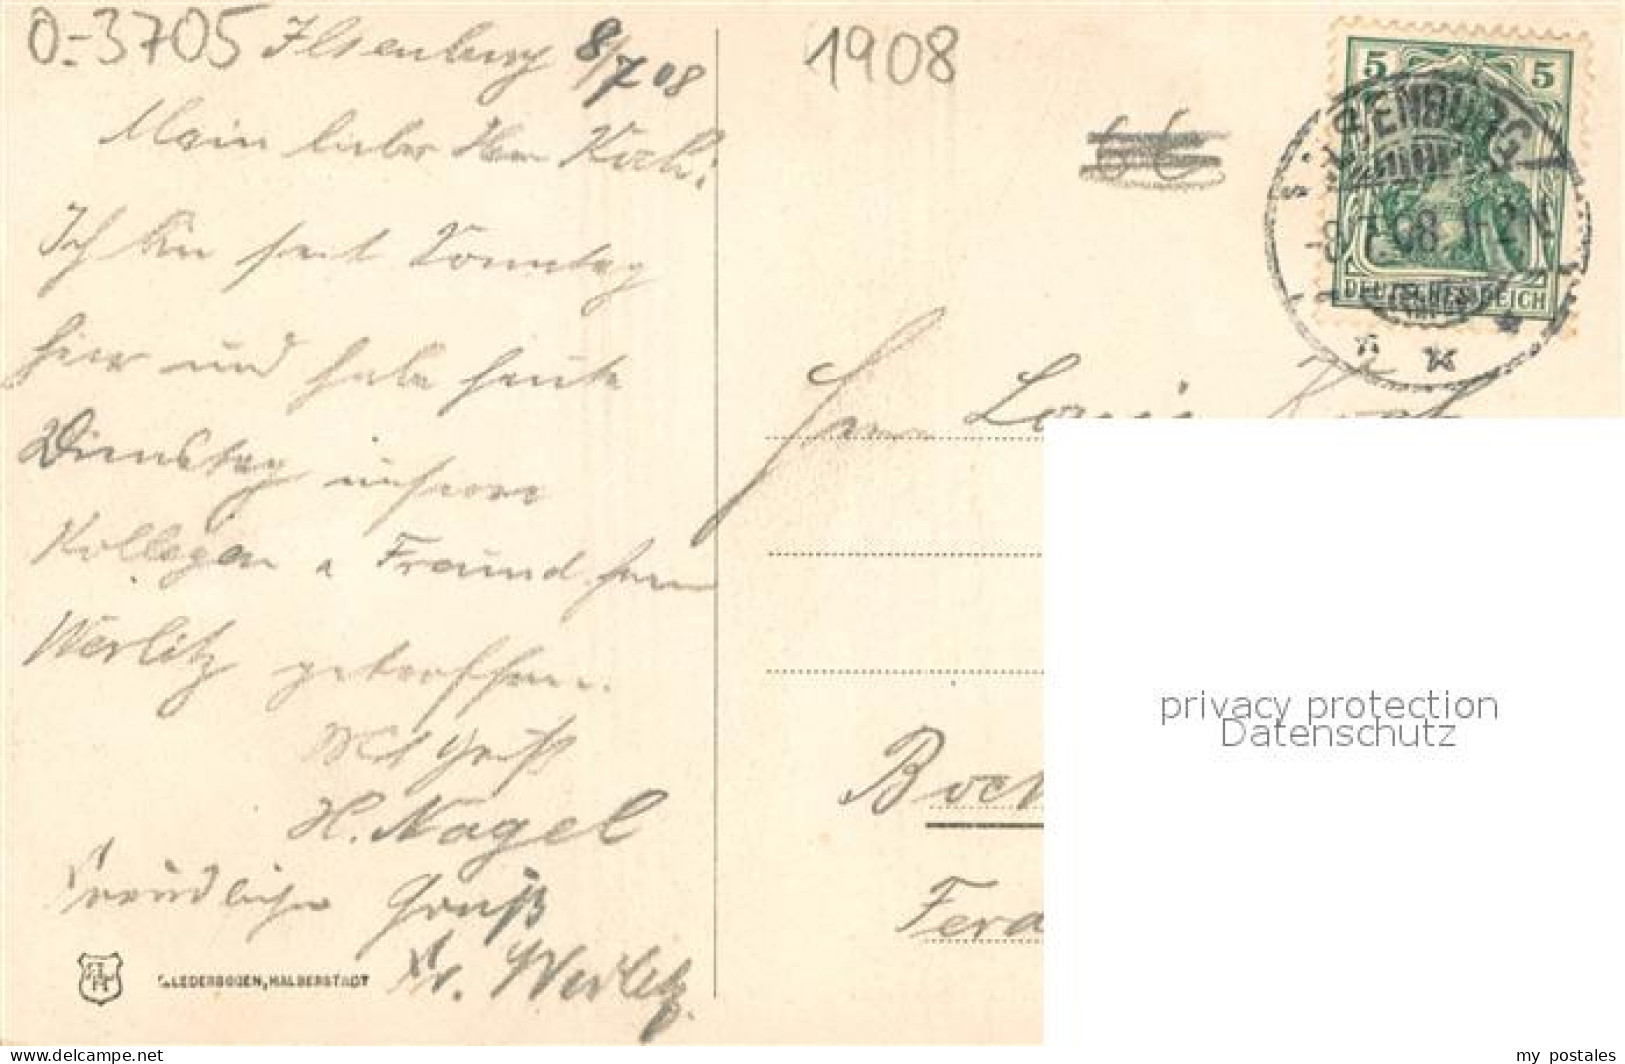 0-3705 Ilsenburg 8/7 08
Mein lieber Herr Koch!
Ich bin seit Sonntag
hier und habe heute
Dienstag unseren
Kollegen u Freund Herrn
Werlitz getroffen.
Mit Gruß
H. Nagel
Freundlichen Gruß
Fr. Werlitz.
LEDERBOGEN, HALBERSTADT
1908
5 5
DEUTSCHES REICH
ILSENBURG
-8.7.08. 1-2N
Herrn Louis Koch
Boch
Ferd
privacy protection
Datenschutz
www.delcampe.net
my_postales